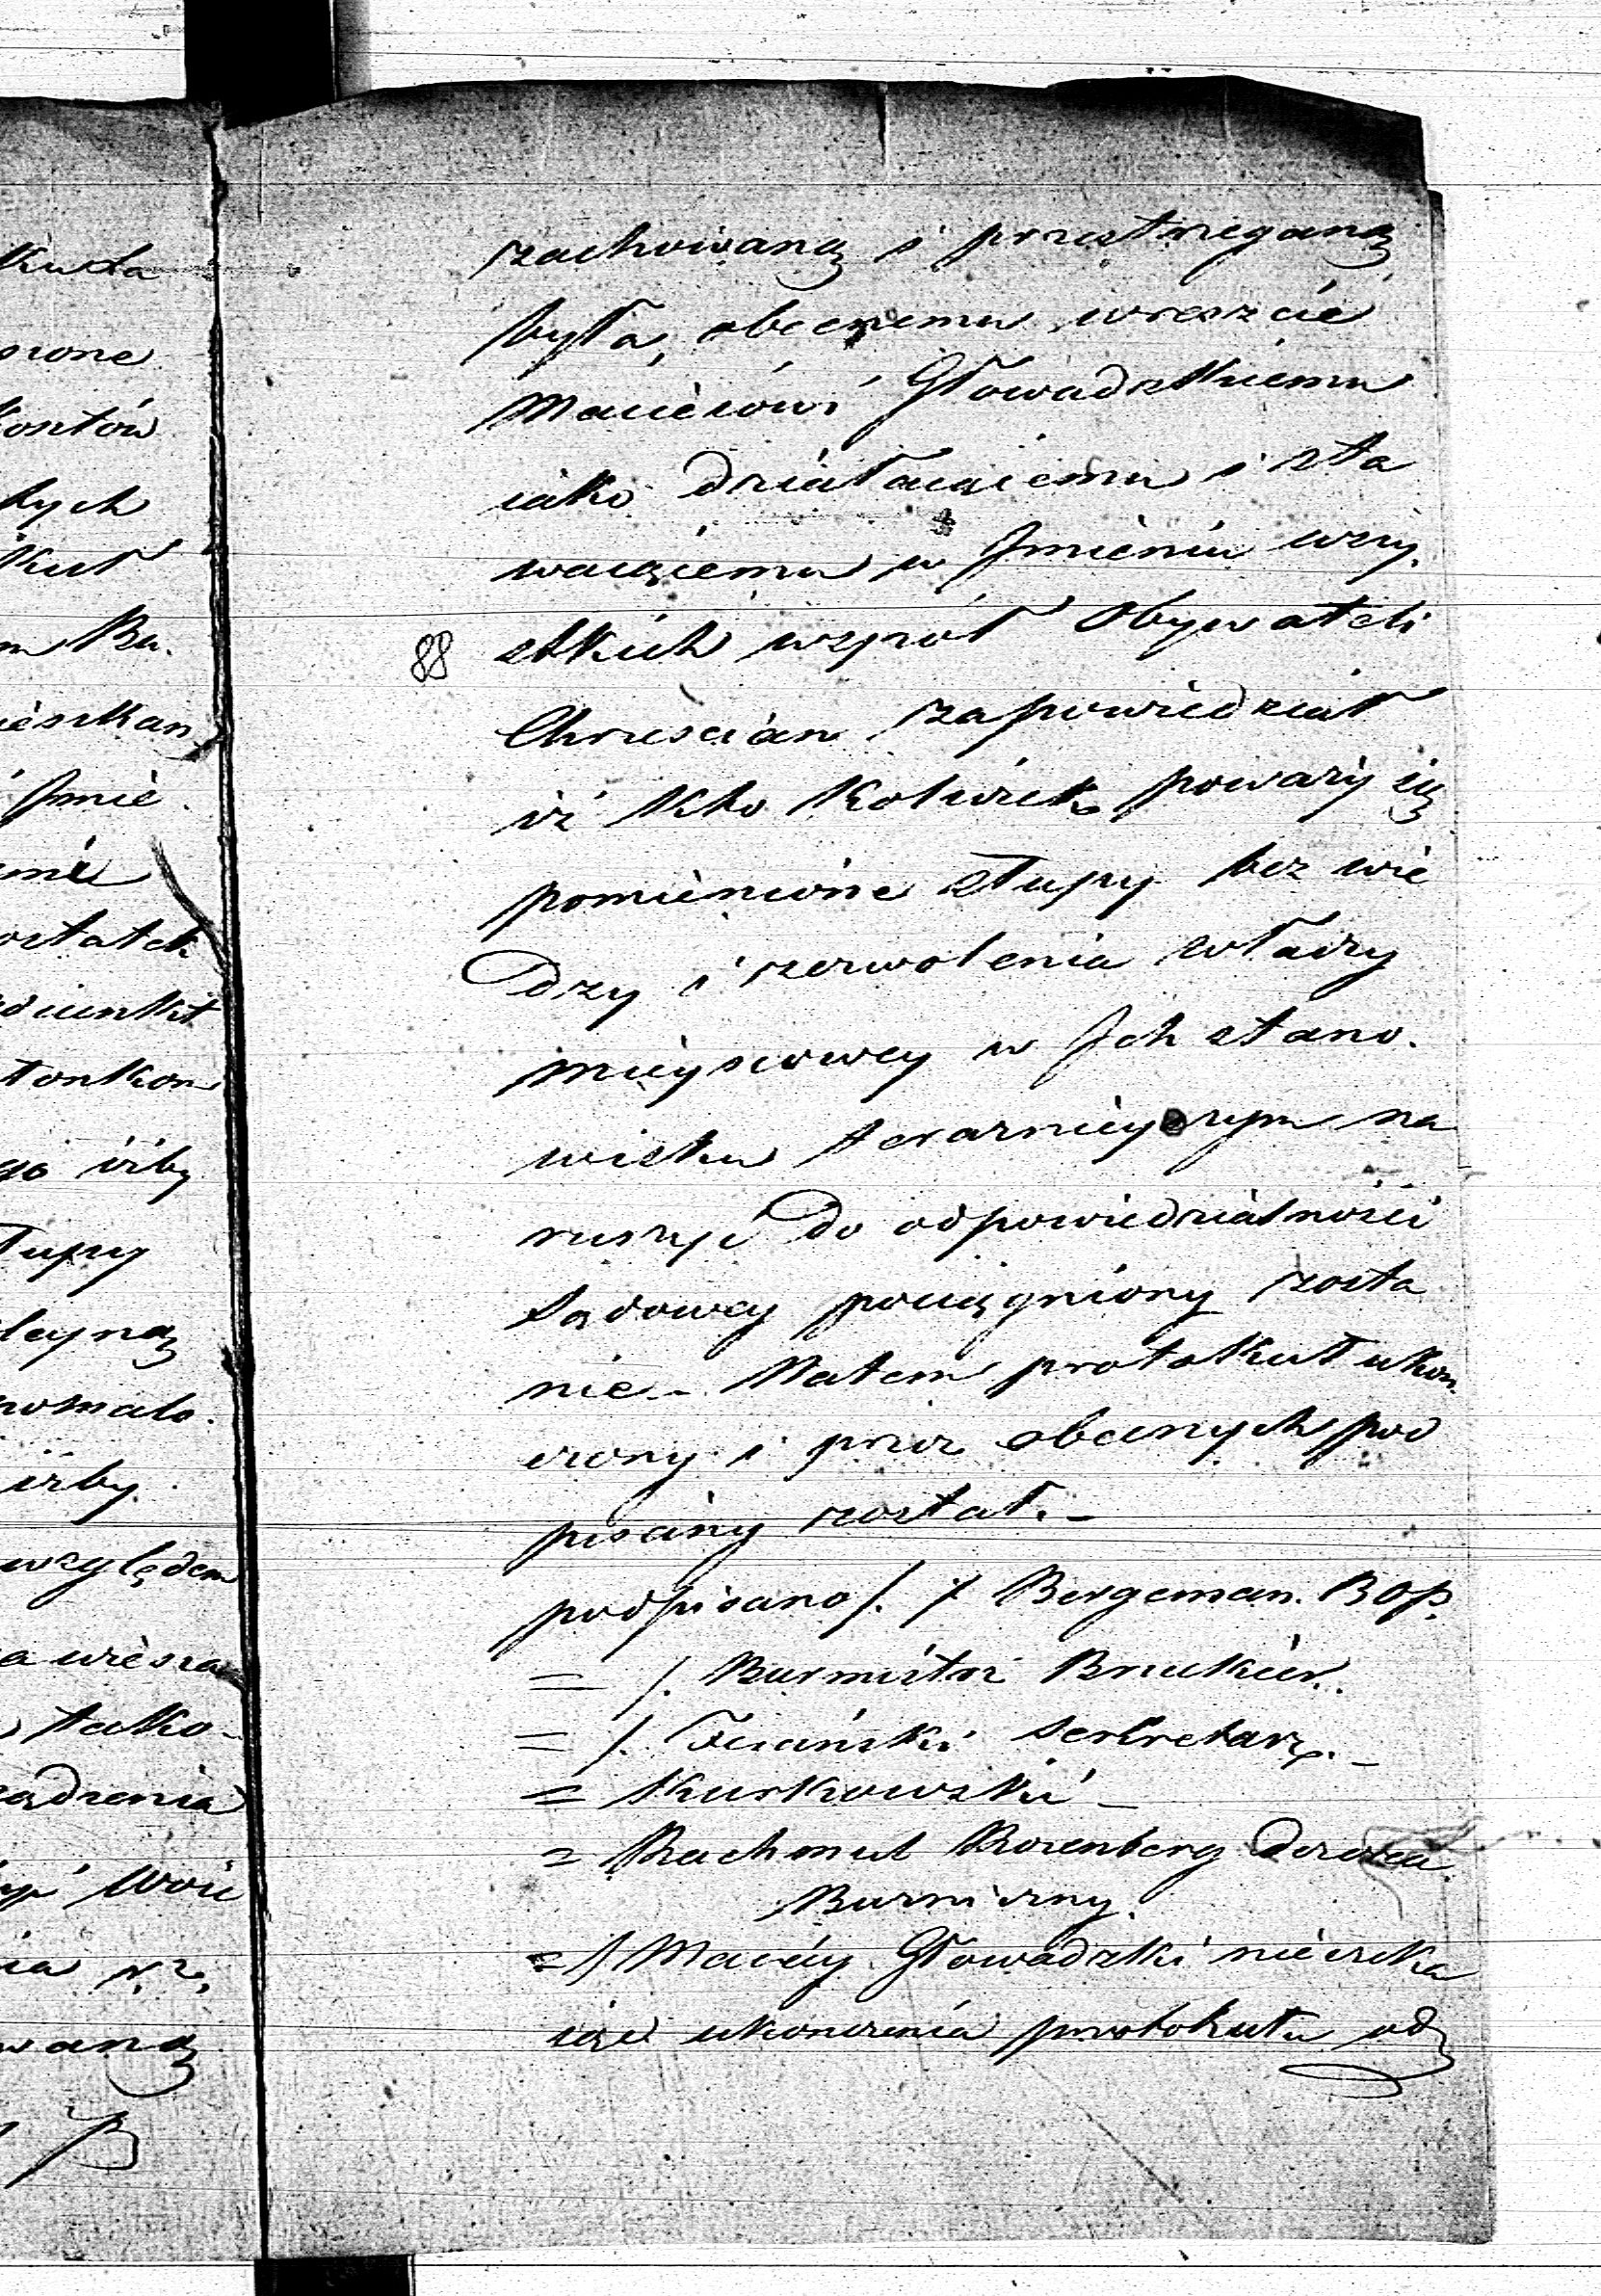 kuda
ione
kontów
kych
kuł
m Bu.
ieszkan
Jmie.
nie
ostatek
tonkon
go iżby
łupy
leyną
nomalo.
iżby.
względem
a wiesza
tutko-
ądzenia
woie
waną
B
zachowaną i przestrzeganą
była, obecnemu wreszcie
Macieiowi Głowadzkiemu
iako działaiąciemu i sta
waiąciemu w Jmieniu wszy.
88
stkich wspoł Obywateli
Chrześcian zapowiedział
iż kto kolwiek poważy się
pomienione słupy bez wie
dzy i zezwolenia władzy
mieyscowey w Jch stano.
wisku terazniey szym na
ruszyć do odpowiedzialności
Sądowey pociągniony zosta
nie.- Zatem protokuł ukon.
czony i prze obecnych pod
pisany został.-
podpisano/. / Bergeman. B O P.
= /. Burmistrz Bruckier.
= /. Sekretarz.-
= Kurkowski -
= Rachmul Rozenberg Dozorca
Burniczny.
= / Maciey Głowadzki nieczeka
iąc ukonczenia protokułu od